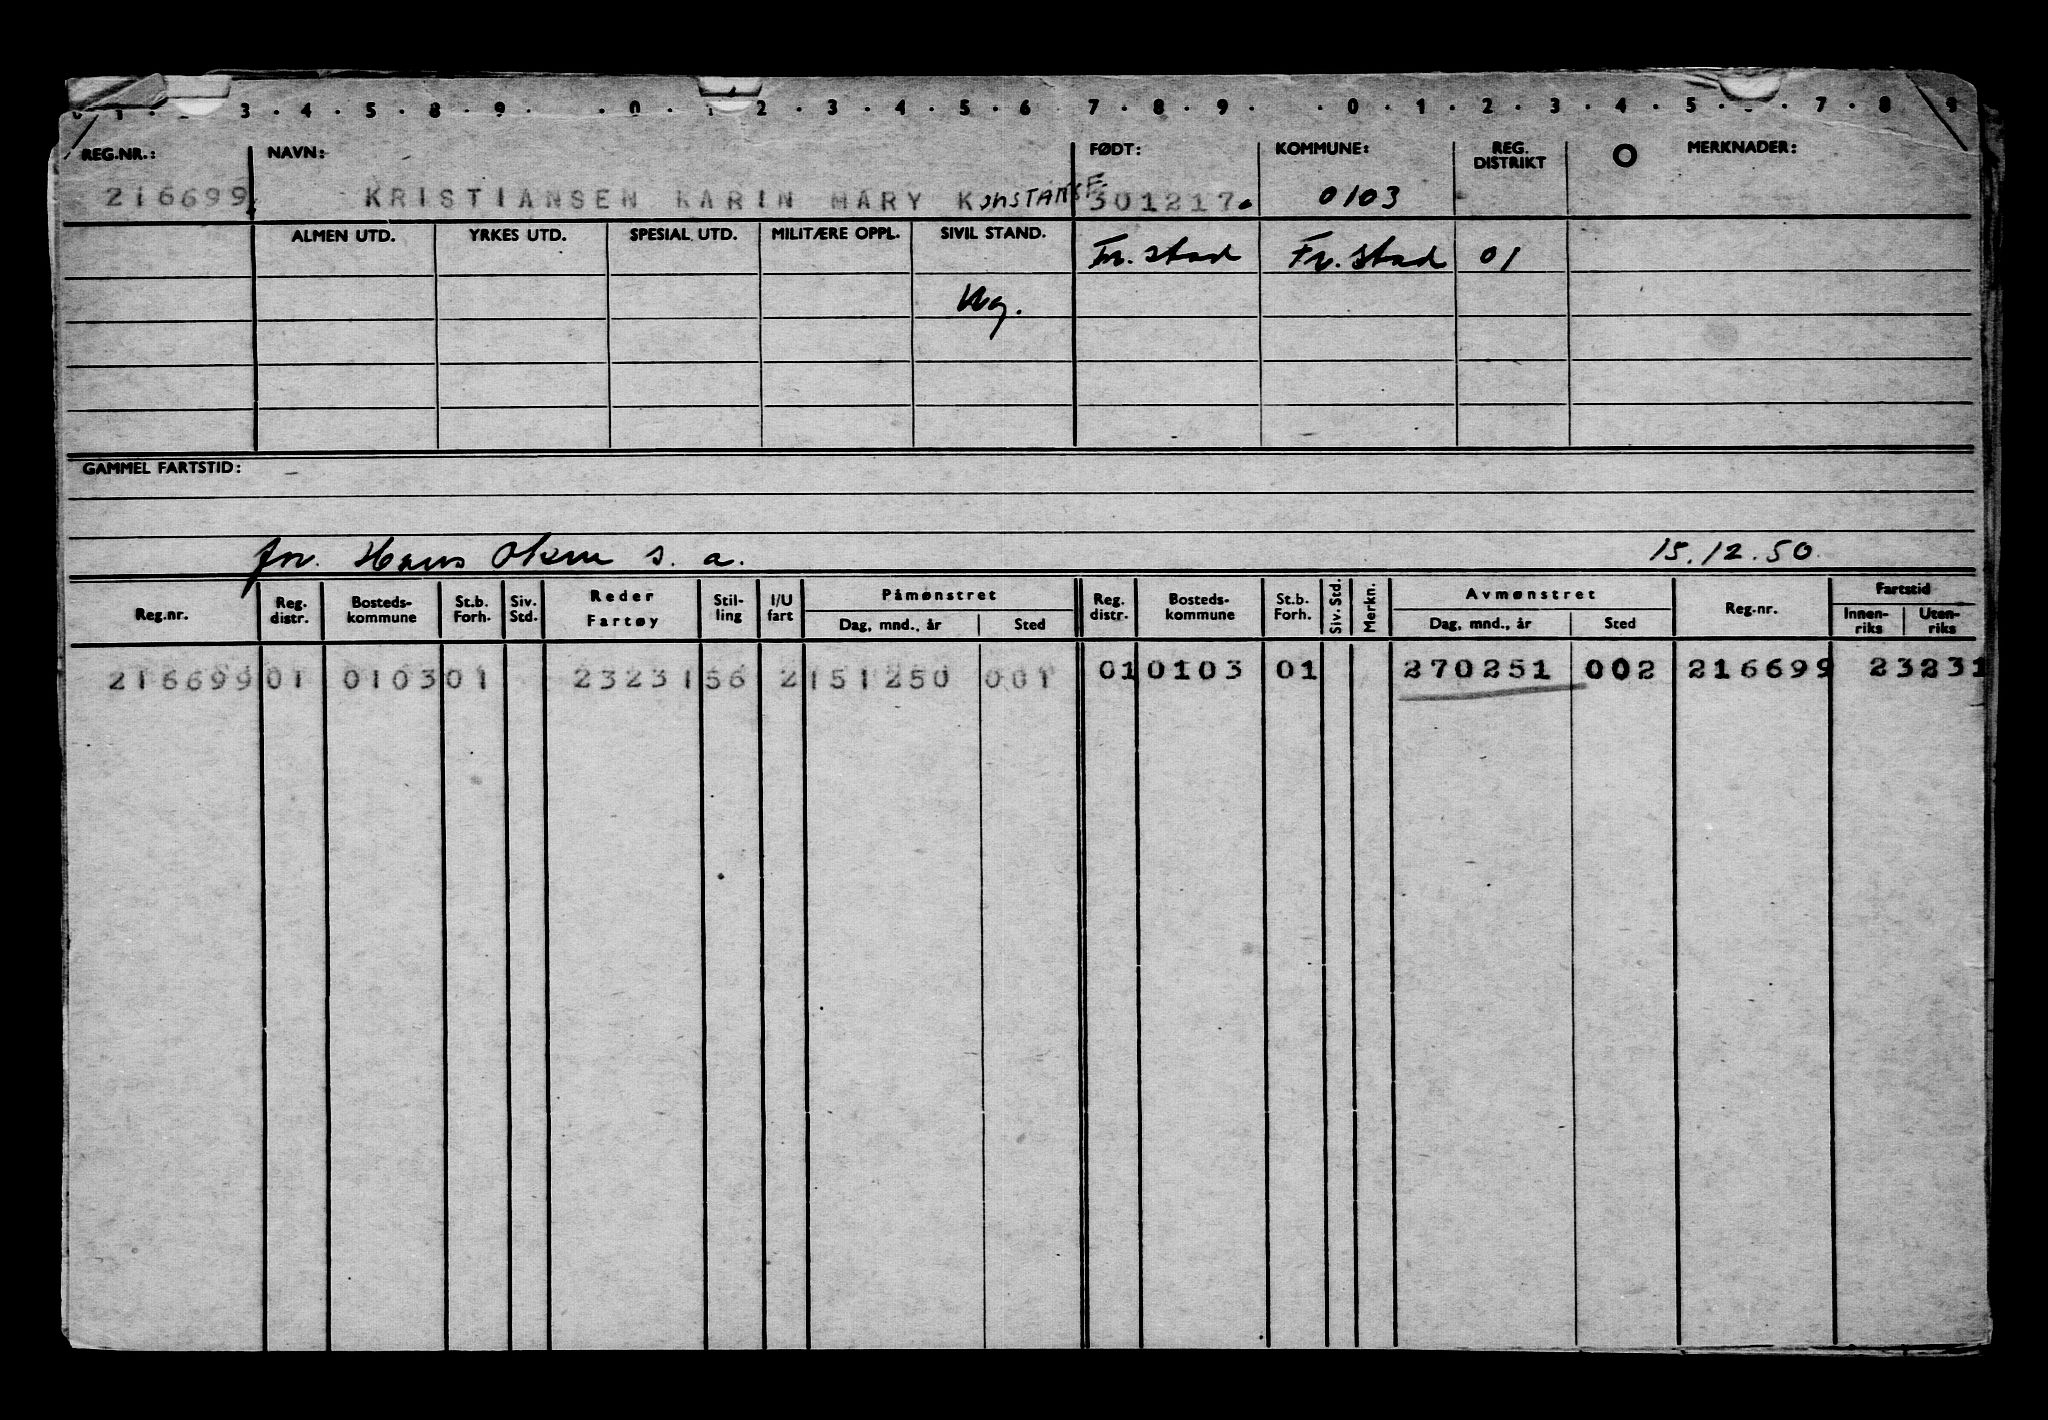 3 . 4 . 5 . 8 . 9 . . 0 . 1 2 . 3 . 4 . 5 . 6 7 . 8 . 9 . . 0 . 1 . 2 . 3 . 4 . 5 . 7 . 8 9
REG.NR.: NAVN: FØDT: KOMMUNE: REG. DISTRIKT O MERKNADER:
216699 KRISTIANSEN KARIN MARY KONSTANSE 301217. 0103
ALMEN UTD. YRKES UTD. SPESIAL UTD. MILITÆRE OPPL. SIVIL STAND. Fr. stad Fr. stad 01
Ug.
GAMMEL FARTSTID:
fm. Hans s. a. 15.12.50
Reg.nr. Reg. distr. Bosteds-kommune St.b. Forh. Siv. Std. Reder Fartøy Stil-ling I/U fart Påmønstret Dag, mnd., år Sted Reg. distr. Bosteds-kommune St.b. Forh. Siv. Std. Merkn. Avmønstret Dag, mnd., år Sted Reg.nr. Fartstid Innen-riks Uten-riks
216699 01 0103 01 23231 56 2 151250 001 01 0103 01 270251 002 216699 23231